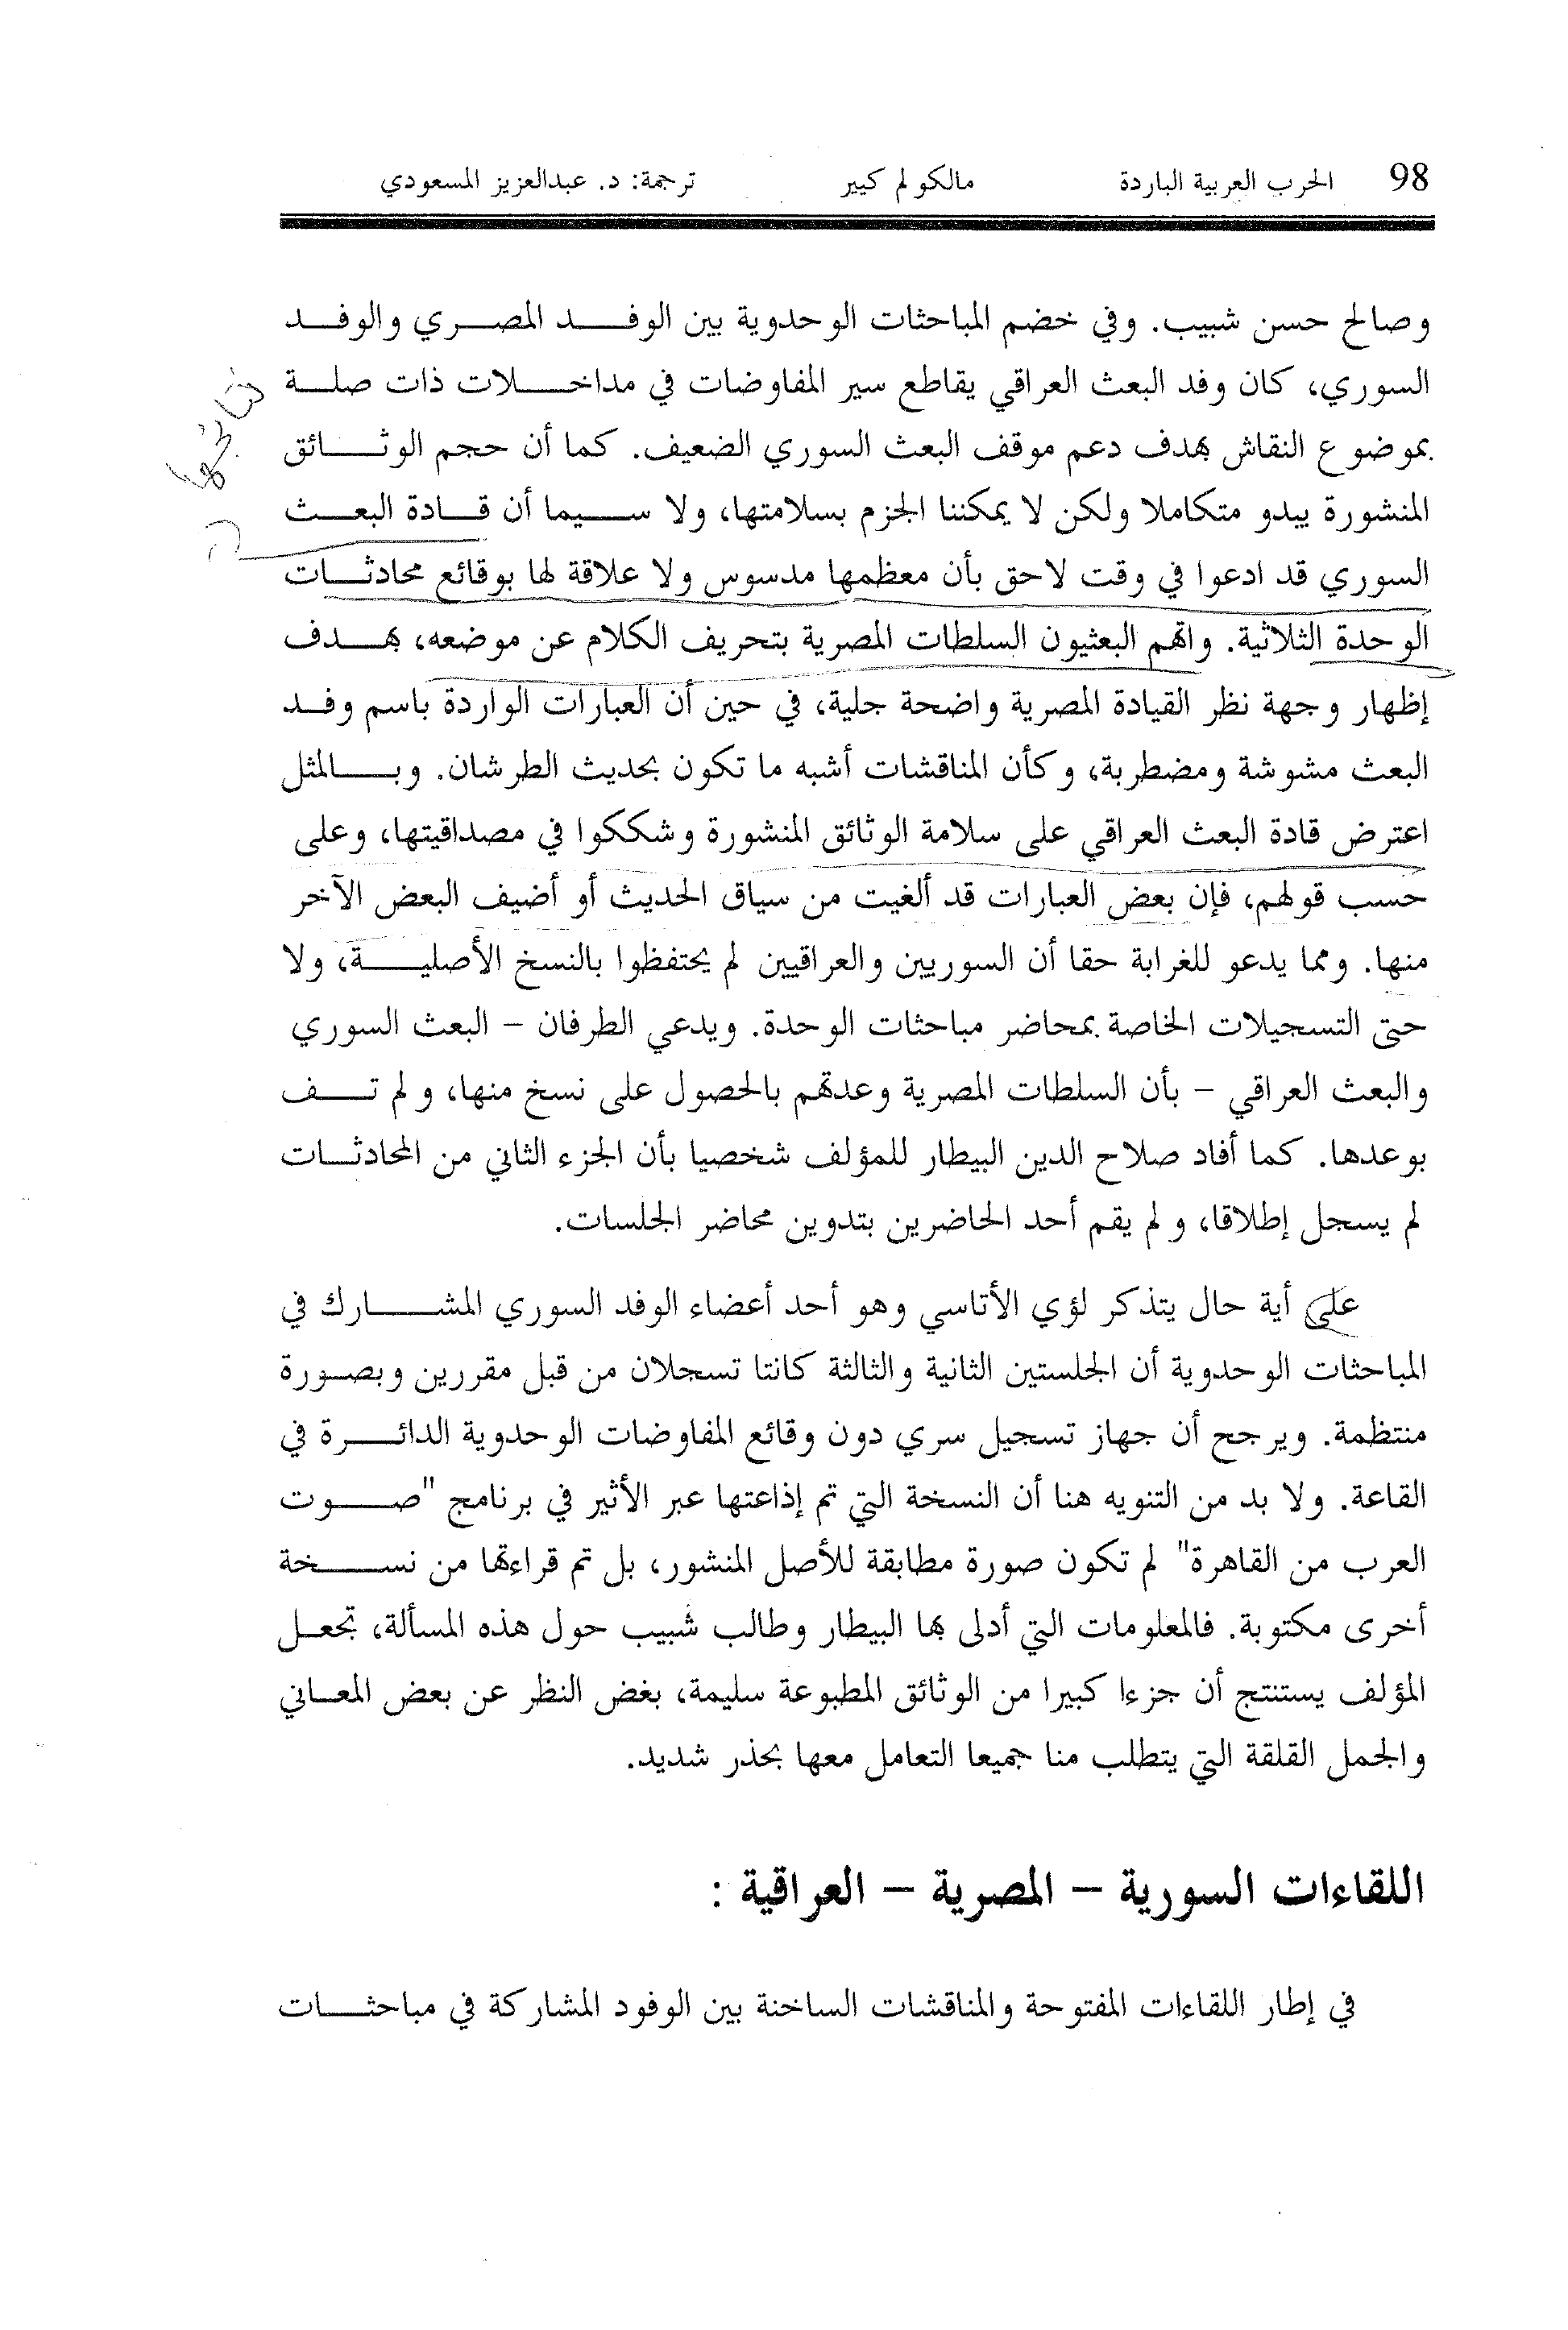 98 الحرب العربية الباردة مالكولم كيير ترجمة: د. عبدالعزيز المسعودي
وصالح حسن شبيب. وفي خضم المباحثات الوحدوية بين الوفد المصري والوفد
السوري، كان وفد البعث العراقي يقاطع سير المفاوضات في مداخلات ذات صلة
بموضوع النقاش بهدف دعم موقف البعث السوري الضعيف. كما أن حجم الوثائق
المنشورة يبدو متكاملا ولكن لا يمكننا الجزم بسلامتها، ولا سيما أن قادة البعث
السوري قد ادعوا في وقت لاحق بأن معظمها مدسوس ولا علاقة لها بوقائع محادثات
الوحدة الثلاثية. واتهم البعثيون السلطات المصرية بتحريف الكلام عن موضعه، بهدف
إظهار وجهة نظر القيادة المصرية واضحة جلية، في حين أن العبارات الواردة باسم وفد
البعث مشوشة ومضطربة، وكأن المناقشات أشبه ما تكون بحديث الطرشان. وبالمثل
اعترض قادة البعث العراقي على سلامة الوثائق المنشورة وشككوا في مصداقيتها، وعلى
حسب قولهم، فإن بعض العبارات قد ألغيت من سياق الحديث أو أضيف البعض الآخر
منها. ومما يدعو للغرابة حقا أن السوريين والعراقيين لم يحتفظوا بالنسخ الأصلية، ولا
حتى التسجيلات الخاصة بمحاضر مباحثات الوحدة. ويدعي الطرفان – البعث السوري
والبعث العراقي – بأن السلطات المصرية وعدتهم بالحصول على نسخ منها، ولم تف
بوعدها. كما أفاد صلاح الدين البيطار للمؤلف شخصيا بأن الجزء الثاني من المحادثات
لم يسجل إطلاقا، ولم يقم أحد الحاضرين بتدوين محاضر الجلسات.
على أية حال يتذكر لؤي الأتاسي وهو أحد أعضاء الوفد السوري المشارك في
المباحثات الوحدوية أن الجلستين الثانية والثالثة كانتا تسجلان من قبل مقررين وبصورة
منتظمة. ويرجح أن جهاز تسجيل سري دون وقائع المفاوضات الوحدوية الدائرة في
القاعة. ولا بد من التنويه هنا أن النسخة التي تم إذاعتها عبر الأثير في برنامج "صوت
العرب من القاهرة" لم تكون صورة مطابقة للأصل المنشور، بل تم قراءتها من نسخة
أخرى مكتوبة. فالمعلومات التي أدلى بها البيطار وطالب شبيب حول هذه المسألة، تجعل
المؤلف يستنتج أن جزءا كبيرا من الوثائق المطبوعة سليمة، بغض النظر عن بعض المعاني
والجمل القلقة التي يتطلب منا جميعا التعامل معها بحذر شديد.
اللقاءات السورية – المصرية – العراقية :
في إطار اللقاءات المفتوحة والمناقشات الساخنة بين الوفود المشاركة في مباحثات